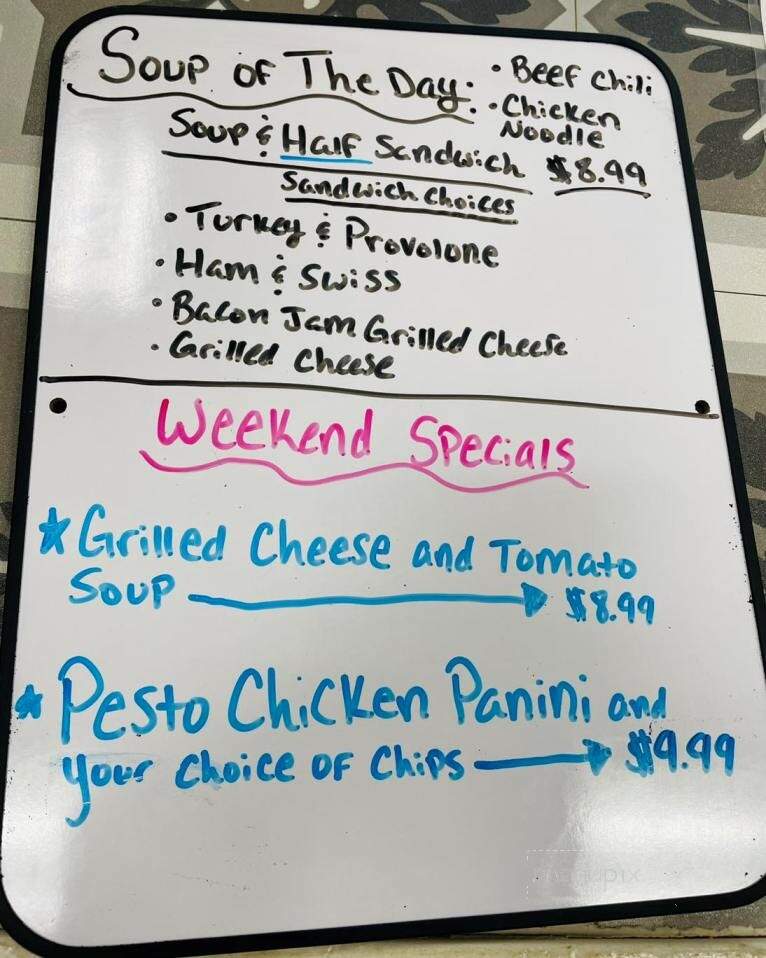 Soup of The Day:
• Beef Chili
• Chicken
Noodle
Soup & Half Sandwich $8.99
Sandwich Choices
• Turkey & Provolone
• Ham & Swiss
• Bacon Jam Grilled Cheese
• Grilled Cheese
Weekend Specials
★ Grilled Cheese and Tomato
Soup → $8.99
★ Pesto Chicken Panini and
your choice of Chips → $9.99
menupix